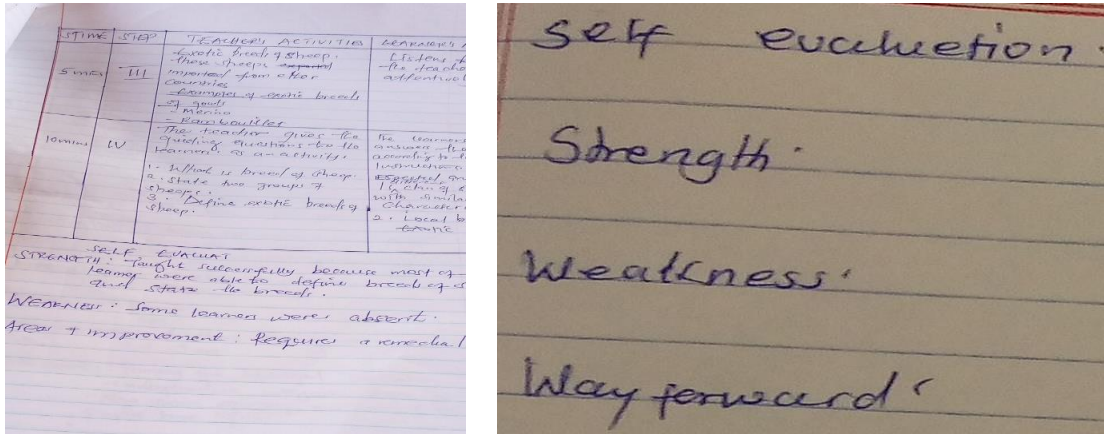 STIME STEP TEACHER'S ACTIVITIES LEARNER'S A
5 mins III
Exotic breeds of sheep.
these sheeps exported
imported from other
countries
Examples of exotic breeds
of goats
- Merino
- Rambouillet
Listens t
the teache
attentivel
10 mins IV
The teacher gives the
guiding questions to the
learners as an activity.
1. What is breed of sheep.
2. State two groups of
sheeps.
3. Define exotic breeds of
sheep.
The learners
answers the
according to th
Instructions
Expected an
with simila
Character
2. Local b
Exotic
SELF EVALUAT
STRENGTH: Taught successfully because most of
learner were able to define breeds of s
and state the breeds.
WEAKNESS: Some learners were absent.
Areas + improvement: Requires a remedial
self evaluetion.
Strength.
Weakness.
Way forward: